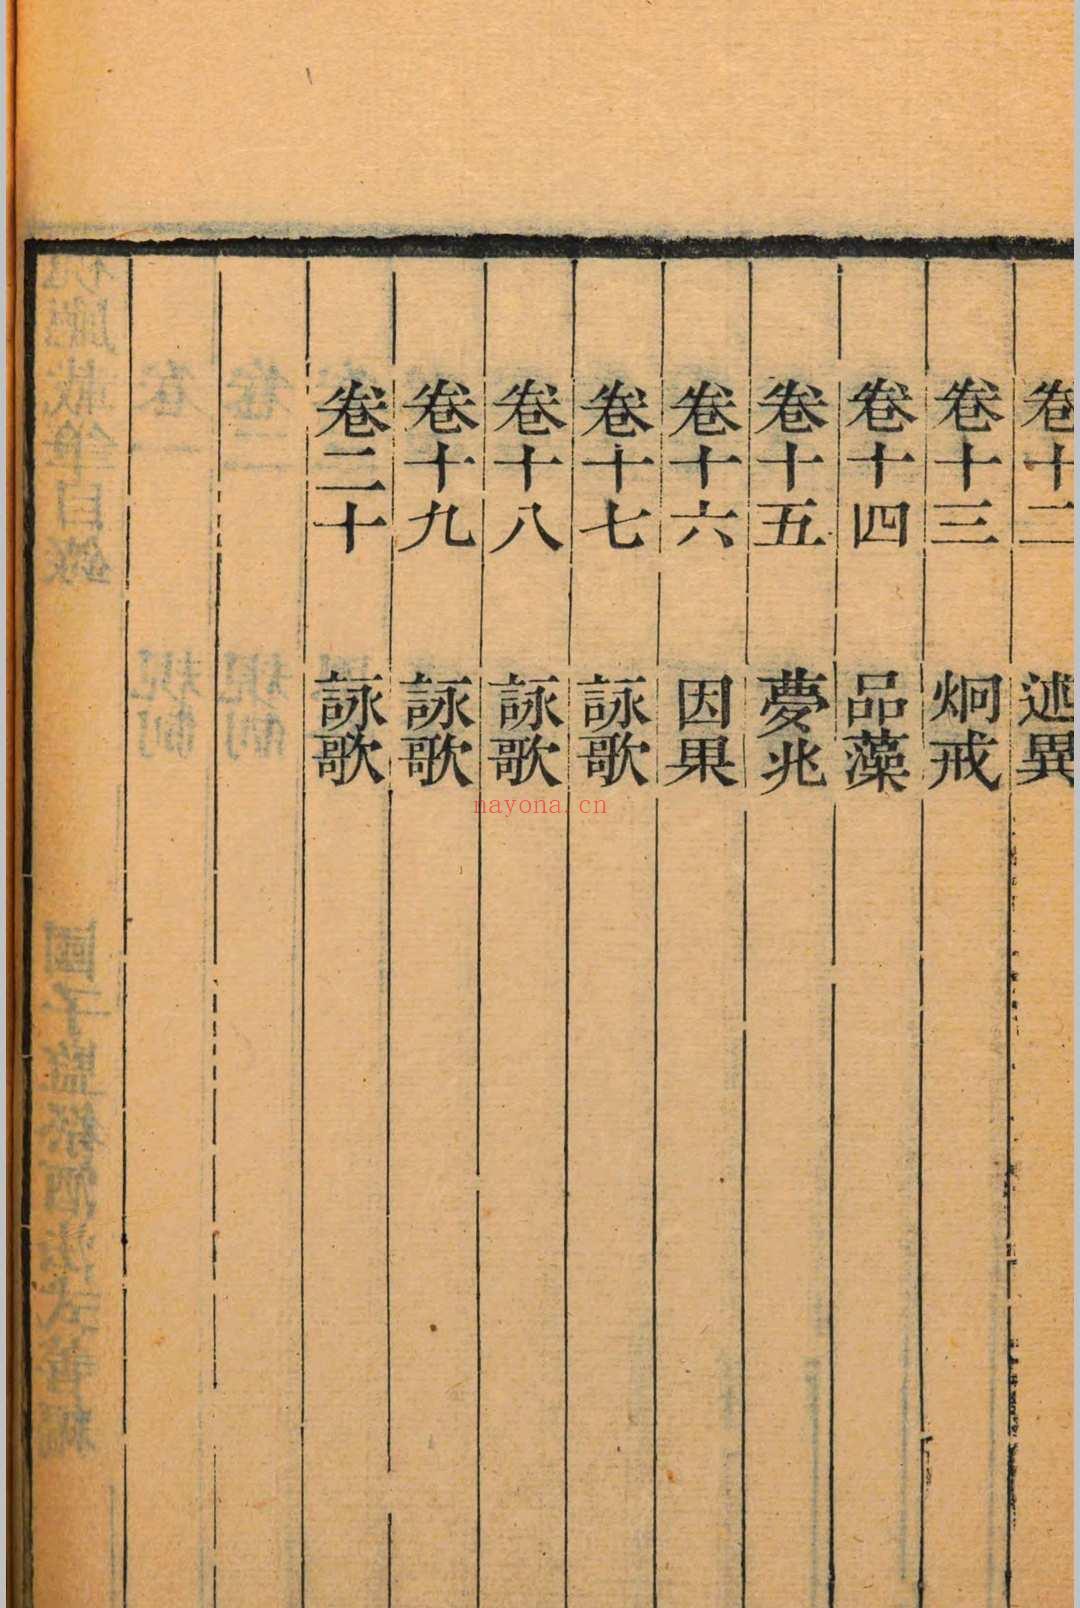 卷十二 述異
卷十三 炯戒
卷十四 品藻
卷十五 夢兆
卷十六 因果
卷十七 詠歌
卷十八 詠歌
卷十九 詠歌
卷二十 詠歌
nayona.cn